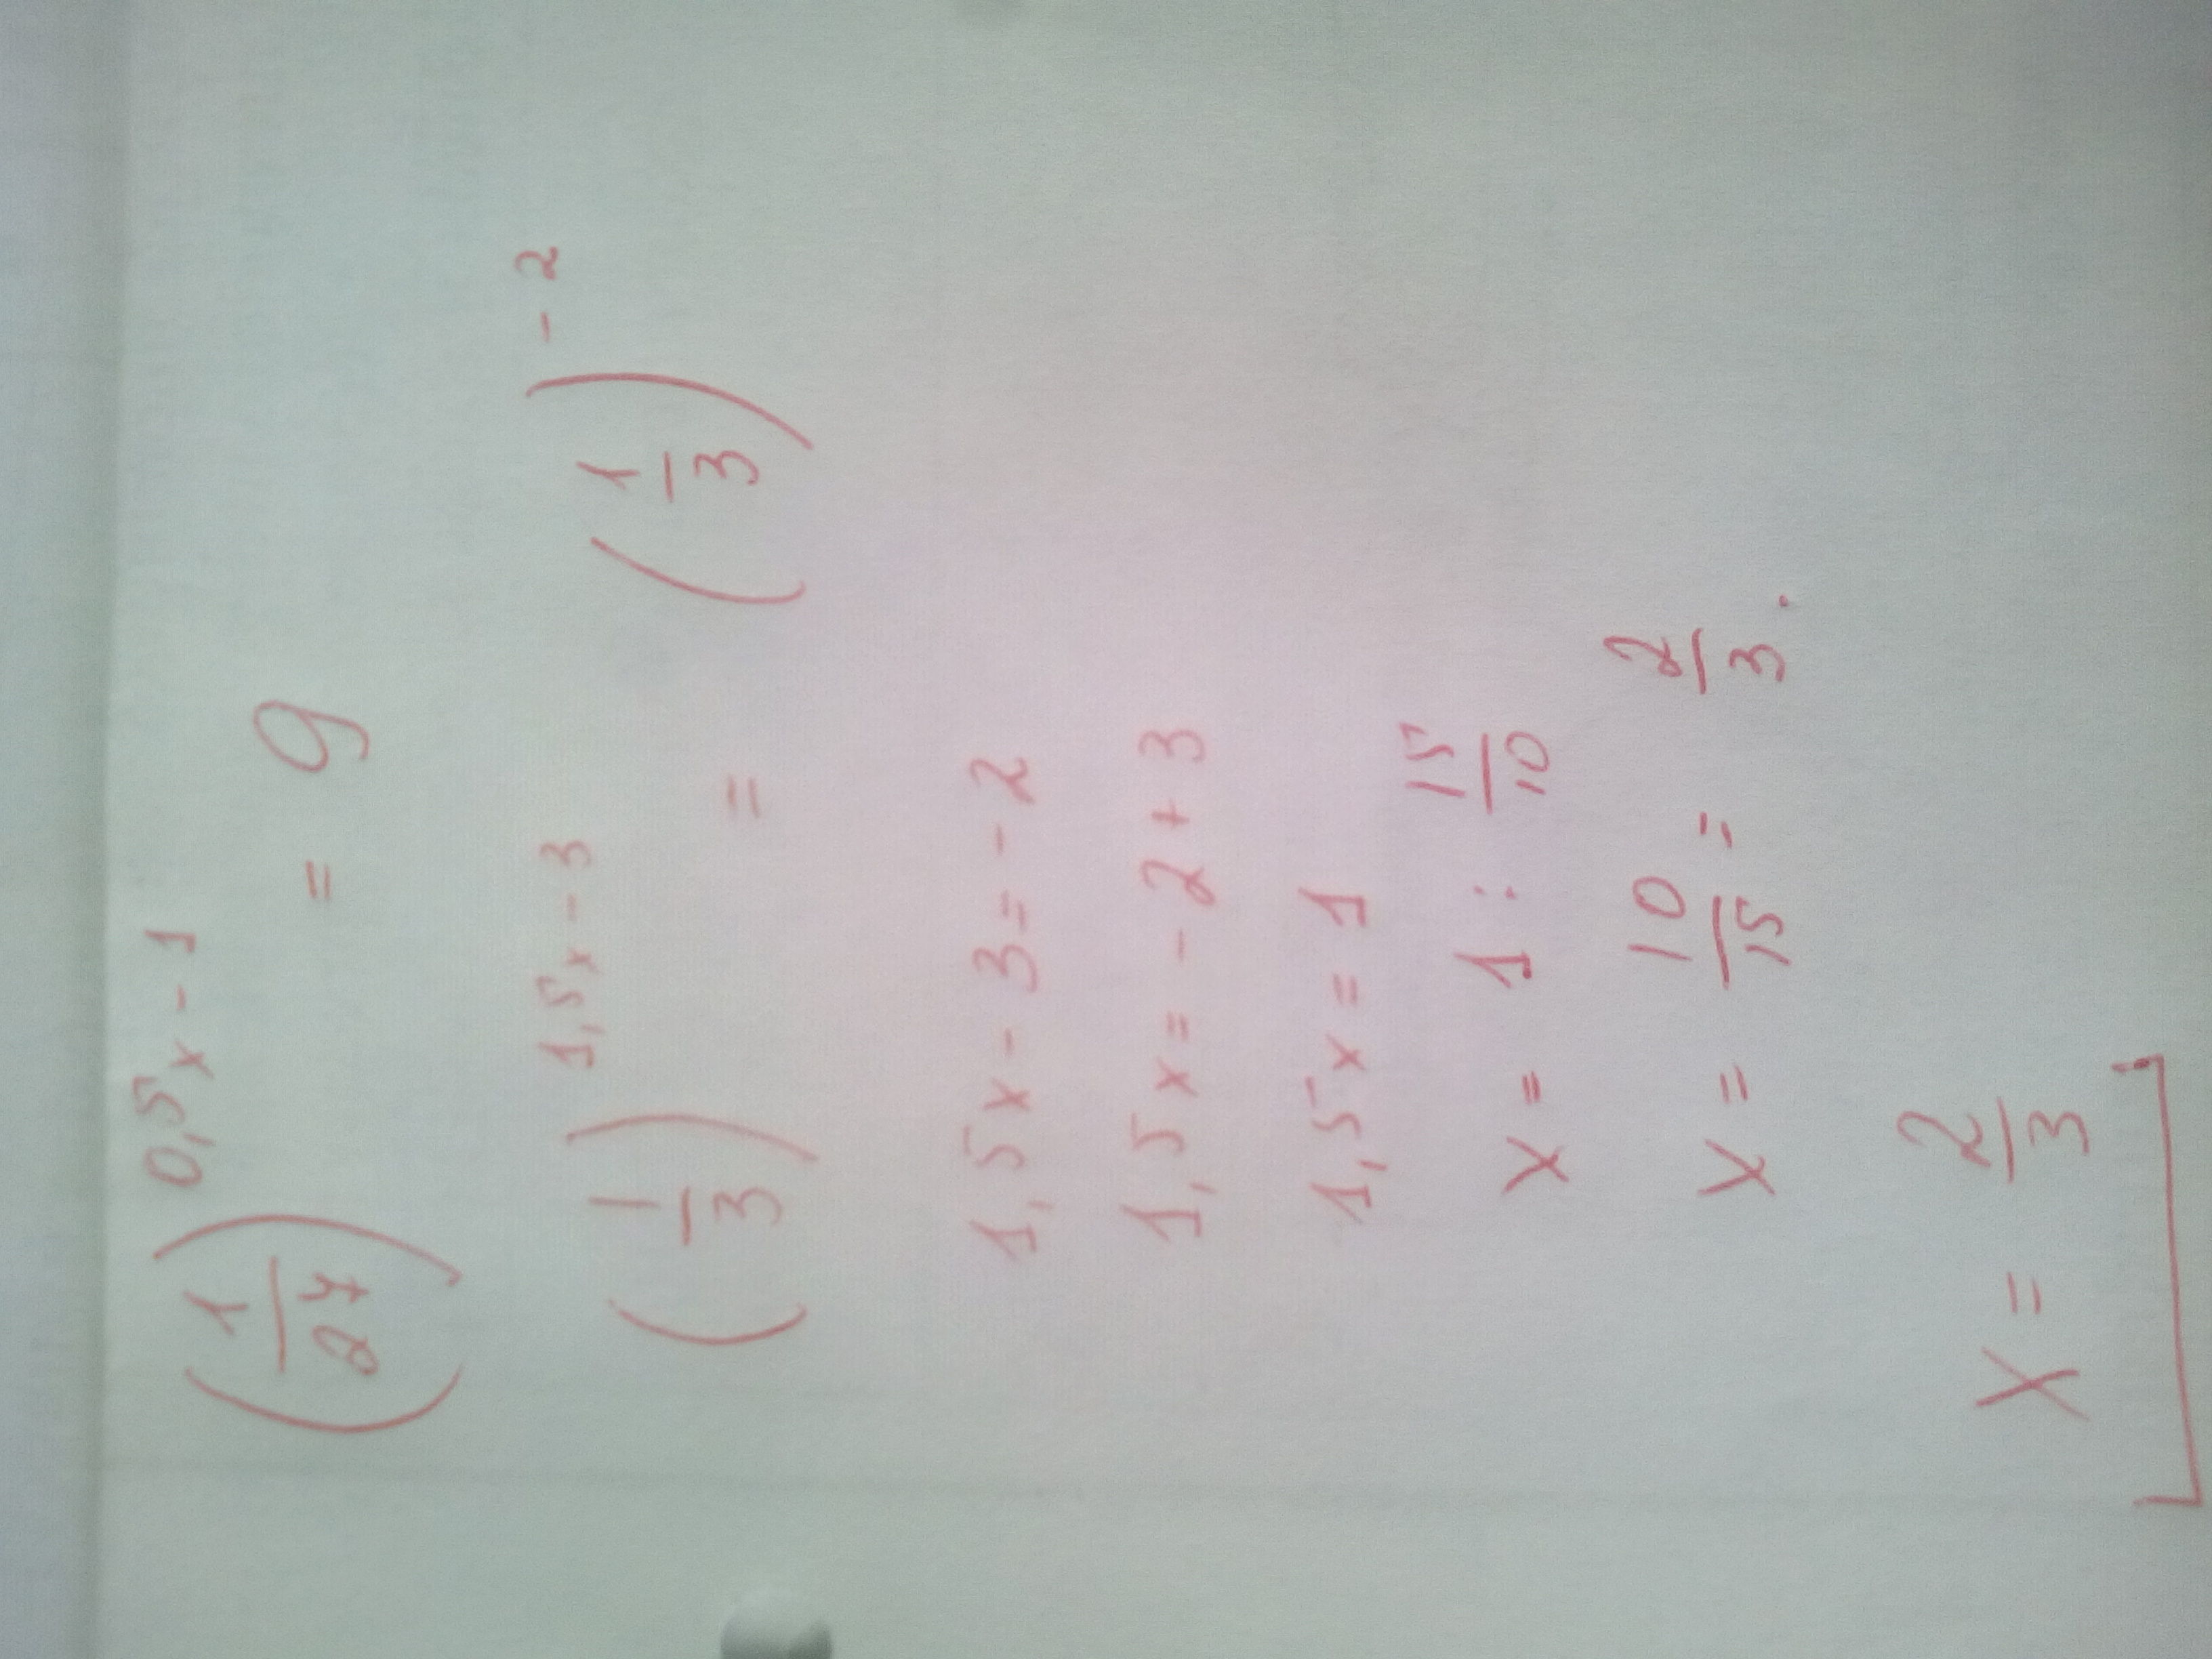 (1/27)^0,5x-1 = 9
(1/3)^1,5x-3 = (1/3)^-2
1,5x-3=-2
1,5x=-2+3
1,5x=1
x= 1: 15/10
x= 10/15 = 2/3.
x= 2/3